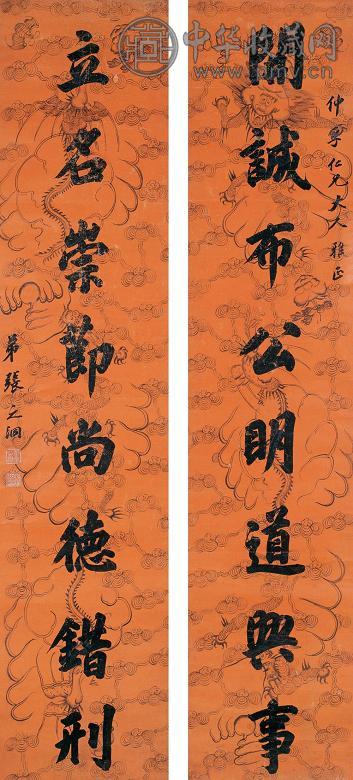 中华收藏网
仲孚仁兄大人雅正
開誠布公明道興事
立名崇節尚德錯刑
弟張之洞